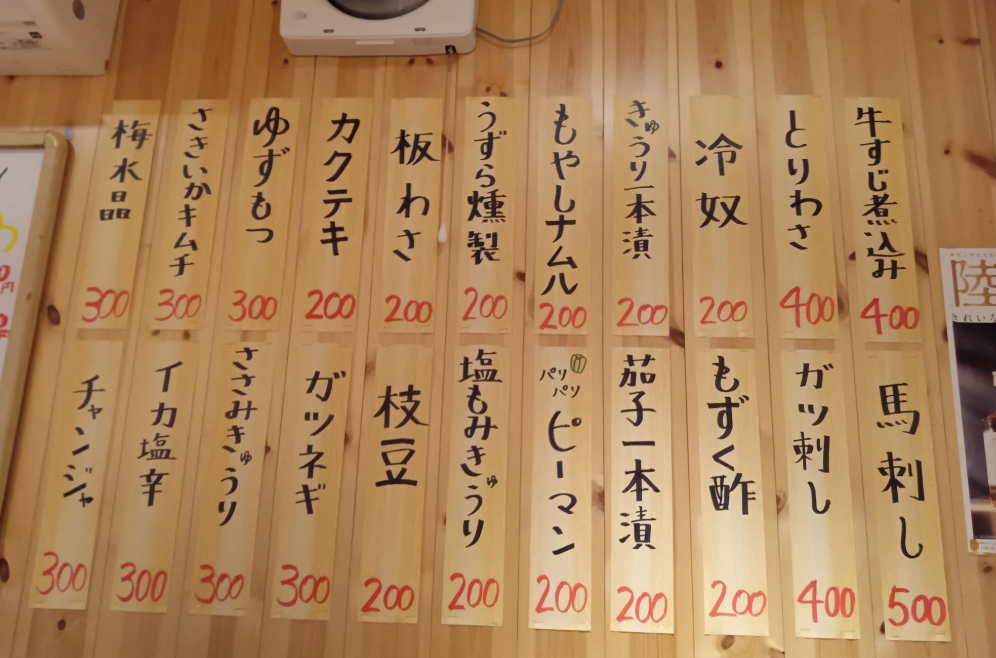 牛すじ煮込み
400
とりわさ
400
冷奴
200
きゅうり一本漬
200
もやしナムル
200
うずら燻製
200
板わさ
200
カクテキ
200
ゆずもつ
300
さきいかキムチ
300
梅水晶
300
馬刺し
500
ガツ刺し
400
もずく酢
200
茄子一本漬
200
パリパリ
ピーマン
200
塩もみきゅうり
200
枝豆
200
ガツネギ
300
ささみきゅうり
300
イカ塩辛
300
チャンジャ
300
陸
きれいな
円